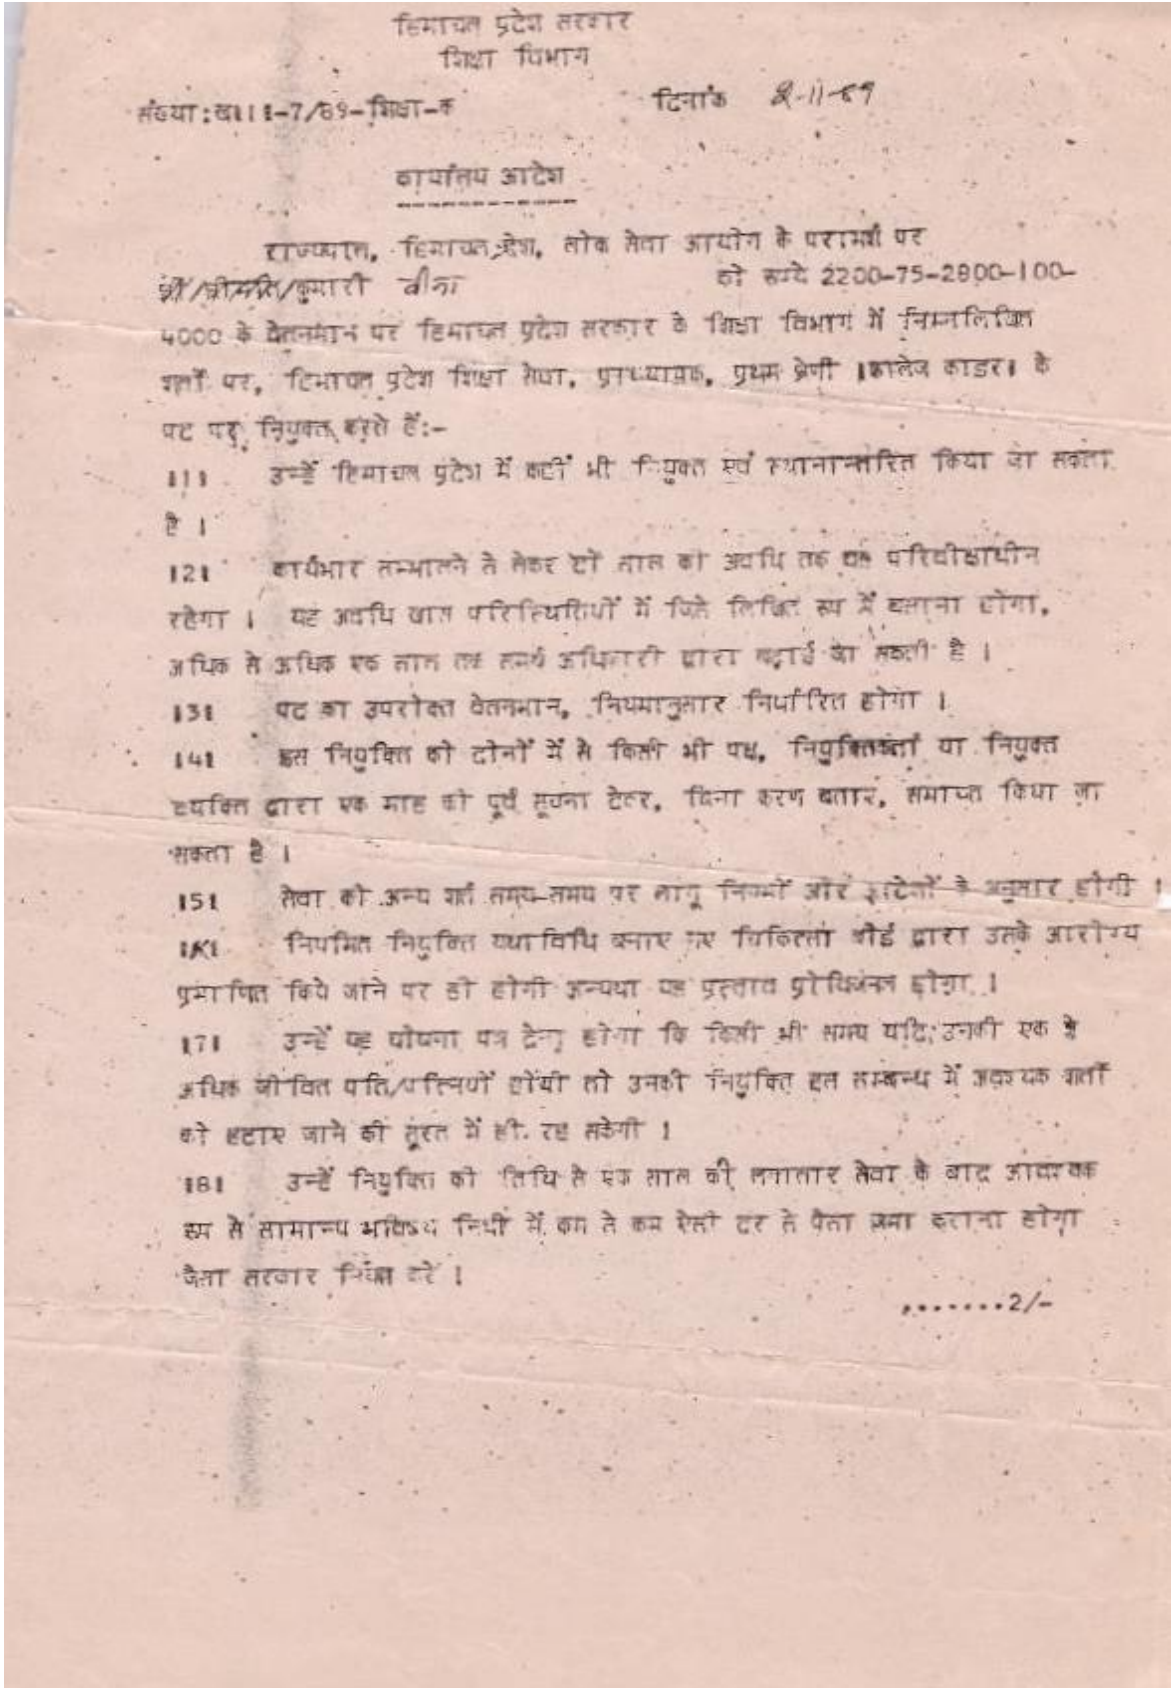 हिमाचल प्रदेश सरकार
शिक्षा विभाग
संख्या:ख।।।-7/89-शिक्षा-क दिनांक 2-11-89
कार्यालय आदेश
राज्यपाल, हिमाचल प्रदेश, लोक सेवा आयोग के परामर्श पर
श्री/श्रीमति/कुमारी वीना को रूपये 2200-75-2800-100-
4000 के वेतनमान पर हिमाचल प्रदेश सरकार के शिक्षा विभाग में निम्नलिखित
शर्तों पर, हिमाचल प्रदेश शिक्षा सेवा, प्राध्यापक, प्रथम श्रेणी ।कालेज काडर। के
पद पर नियुक्त करते हैं:-
।1। उन्हें हिमाचल प्रदेश में कहीं भी नियुक्त एवं स्थानान्तरित किया जा सकता
है ।
।2। कार्यभार सम्भालने से लेकर दो साल की अवधि तक वह परिवीक्षाधीन
रहेगा । यह अवधि खास परिस्थितियों में जिसे लिखित रूप में बताना होगा,
अधिक से अधिक एक साल तक समर्थ अधिकारी द्वारा बढ़ाई जा सकती है ।
।3। पद का उपरोक्त वेतनमान, नियमानुसार निर्धारित होगा ।
।4। इस नियुक्ति को दोनों में से किसी भी पक्ष, नियुक्तिकर्ता या नियुक्त
व्यक्ति द्वारा एक माह की पूर्व सूचना देकर, बिना करण बताए, समाप्त किया जा
सकता है ।
।5। सेवा की अन्य शर्त समय-समय पर लागू नियमों और आदेशों के अनुसार होगी ।
।6। नियमित नियुक्ति यथाविधि बनाए गए चिकित्सा बोर्ड द्वारा उसके आरोग्य
प्रमाणित किये जाने पर ही होगी अन्यथा यह प्रस्ताव प्रोविजनल होगा ।
।7। उन्हें यह घोषना पत्र देना होगा कि किसी भी समय यदि उनकी एक से
अधिक जीवित पति/पत्नियाँ होंयी तो उनकी नियुक्ति इस सम्बन्ध में आवश्यक शर्तों
को हटाए जाने की सूरत में ही रह सकेगी ।
।8। उन्हें नियुक्ति की तिथि से एक साल की लगातार सेवा के बाद आवश्यक
रूप से सामान्य भविष्य निधी में कम से कम ऐसी दर से पैसा जमा कराना होगा
जैसा सरकार नियत करे ।
.......2/-